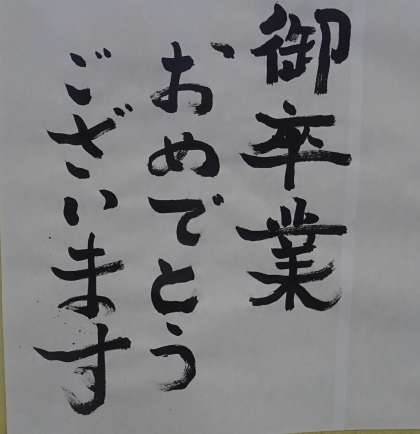 御卒業
おめでとう
ございます